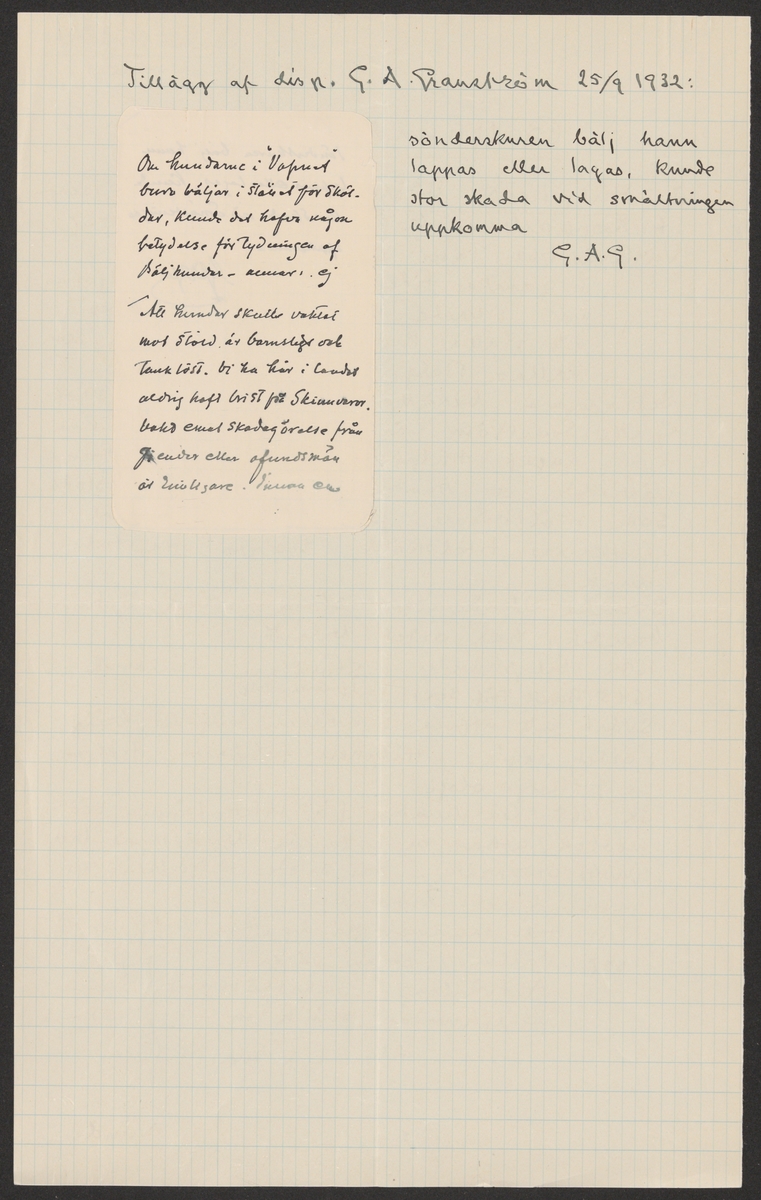 Tillägg af disp. G. A. Granström 25/9 1932:
Om hundarne i "Vapnet"
buro bäljor i stället för sköl-
dar, kunde det hafva någon
betydelse för tydningen af
Bäljhundar - annars ej
Att hundar skulle vaktat
mot stöld är barnsligt och
tanklöst. Vi ha här i landet
aldrig haft brist på skinnvaror.
Vakt emot skadegörelse från
fiender eller afundsmän
är troligare. Innan en
sönderskuren bälj hann
lappas eller lagas, kunde
stor skada vid smältningen
uppkomma
G. A. G.